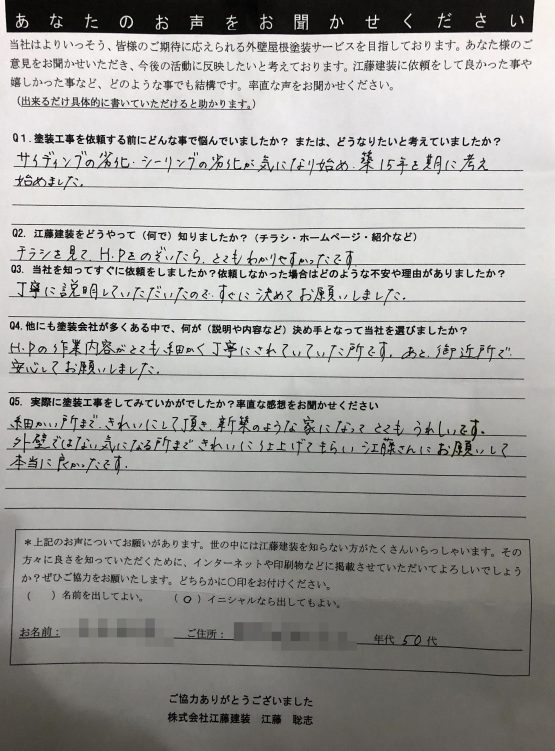 あなたのお声をお聞かせください
当社はよりいっそう、皆様のご期待に応えられる外壁屋根塗装サービスを目指しております。あなた様のご
意見をお聞かせいただき、今後の活動に反映したいと考えております。江藤建装に依頼をして良かった事や
嬉しかった事など、どのような事でも結構です。率直な声をお聞かせください。
(出来るだけ具体的に書いていただけると助かります。)
Q1.塗装工事を依頼する前にどんな事で悩んでいましたか？ または、どうなりたいと考えていましたか？
サイディングの劣化・シーリングの劣化が気になり始め、築15年を期に考え
始めました。
Q2. 江藤建装をどうやって（何で）知りましたか？（チラシ・ホームページ・紹介など）
チラシを見て、H.Pをのぞいたら、とてもわかりやすかったです
Q3. 当社を知ってすぐに依頼をしましたか？依頼しなかった場合はどのような不安や理由がありましたか？
丁寧に説明していただいたので、すぐに決めてお願いしました。
Q4.他にも塗装会社が多くある中で、何が（説明や内容など）決め手となって当社を選びましたか？
H.Pの作業内容がとても細かく丁寧にされていていた所です。あと、御近所で、
安心してお願いしました。
Q5. 実際に塗装工事をしてみていかがでしたか？率直な感想をお聞かせください
細かい所まで、きれいにして頂き、新築のような家になって とても うれしいです。
外壁ではない気になる所まで きれいに仕上げてもらい 江藤さんに お願いして
本当に良かったです.
＊上記のお声についてお願いがあります。世の中には江藤建装を知らない方がたくさんいらっしゃいます。その
方々に良さを知っていただくために、インターネットや印刷物などに掲載させていただいてよろしいでしょう
か？ぜひご協力をお願いいたします。どちらかに○印をお付けください。
（　）名前を出してよい。　（○）イニシャルなら出してもよい。
お名前：　ご住所：　年代 50 代
ご協力ありがとうございました
株式会社江藤建装　江藤　聡志